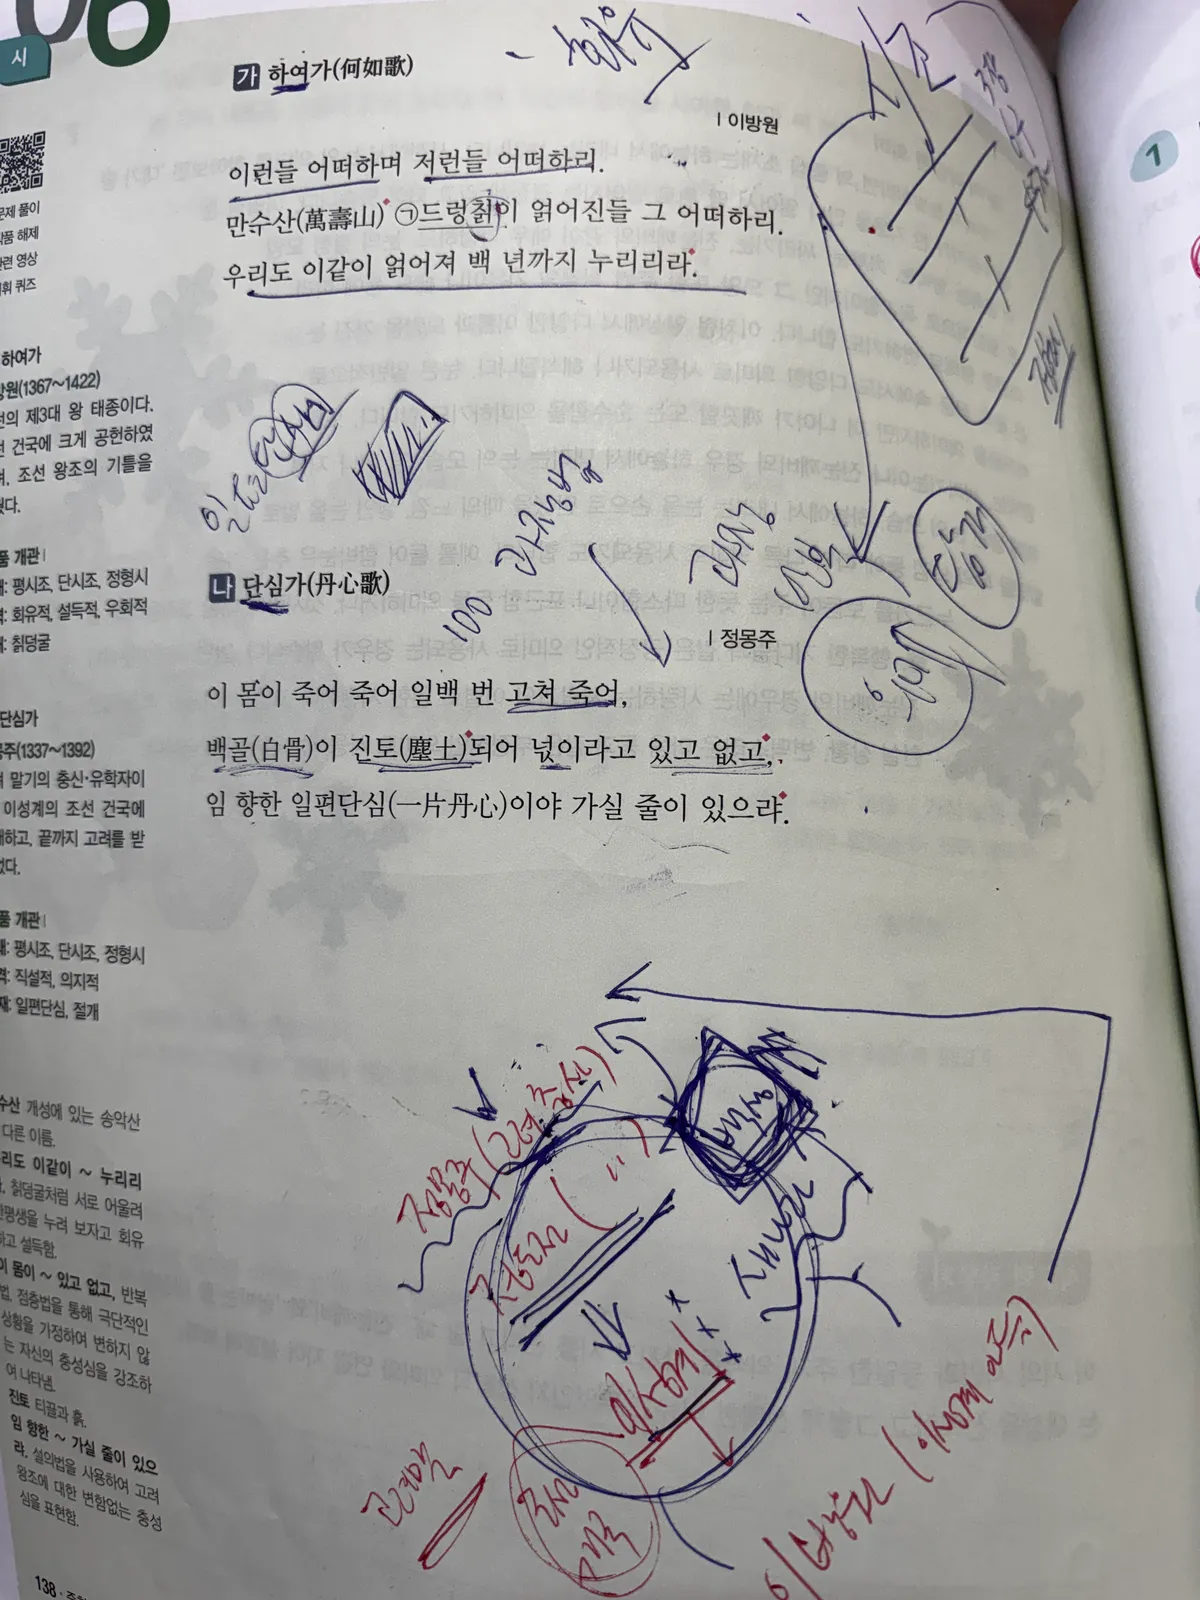 06
시
가 하여가(何如歌)
회유
| 이방원
이런들 어떠하며 저런들 어떠하리.
만수산(萬壽山) ㉠드렁칡이 얽어진들 그 어떠하리.
우리도 이같이 얽어져 백 년까지 누리리라.
문제 풀이
작품 해제
관련 영상
어휘 퀴즈
하여가
방원(1367~1422)
선의 제3대 왕 태종이다.
선 건국에 크게 공헌하였
며, 조선 왕조의 기틀을
품 개관 |
: 평시조, 단시조, 정형시
격: 회유적, 설득적, 우회적
재: 칡덩굴
일편단심
나 단심가(丹心歌)
100
과장
| 정몽주
이 몸이 죽어 죽어 일백 번 고쳐 죽어,
백골(白骨)이 진토(塵土)되어 넋이라고 있고 없고,
임 향한 일편단심(一片丹心)이야 가실 줄이 있으랴.
단심가
몽주(1337~1392)
려 말기의 충신·유학자이
이성계의 조선 건국에
대하고, 끝까지 고려를 받
었다.
품 개관 |
: 평시조, 단시조, 정형시
격: 직설적, 의지적
재: 일편단심, 절개
수산 개성에 있는 송악산
다른 이름.
리도 이같이 ~ 누리리
, 칡덩굴처럼 서로 어울려
한평생을 누려 보자고 회유
하고 설득함.
이 몸이 ~ 있고 없고, 반복
법, 점층법을 통해 극단적인
상황을 가정하여 변하지 않
는 자신의 충성심을 강조하
여 나타냄.
진토 티끌과 흙.
임 향한 ~ 가실 줄이 있으
랴. 설의법을 사용하여 고려
왕조에 대한 변함없는 충성
심을 표현함.
정몽주 (고려 충신)
정도전 ( " )
이성계
고려말
조선
건국
138
1